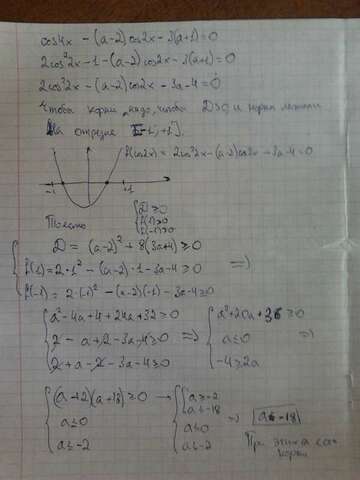 cos4x - (a-2)cos2x - 3(a+1)=0
2cos²2x-1-(a-2)cos2x-3(a+1)=0
2cos²2x - (a-2)cos2x - 3a-4=0
чтобы корни надо, чтобы D≥0 и корни лежали
на отрезке [-1; +1].
f(cos2x) = 2cos²2x-(a-2)cos2x-3a-4=0
-1 +1
D≥0
f(1)≥0
f(-1)≥0
D = (a-2)²+8(3a+4)≥0
f(1)=2·1²-(a-2)·1-3a-4≥0 =>
f(-1)= 2·(-1)²-(a-2)(-1)-3a-4≥0
a²-4a+4+24a+32≥0 => a²+20a+36≥0
2-a+2-3a-4≥0 a≤0 =>
2+a-2-3a-4≥0 -4≥2a
(a+2)(a+18)≥0 → a≥-2
a≤-18 => a≤-18
a≤0 a≤0
a≤-2 a≤-2
При этих a
корни